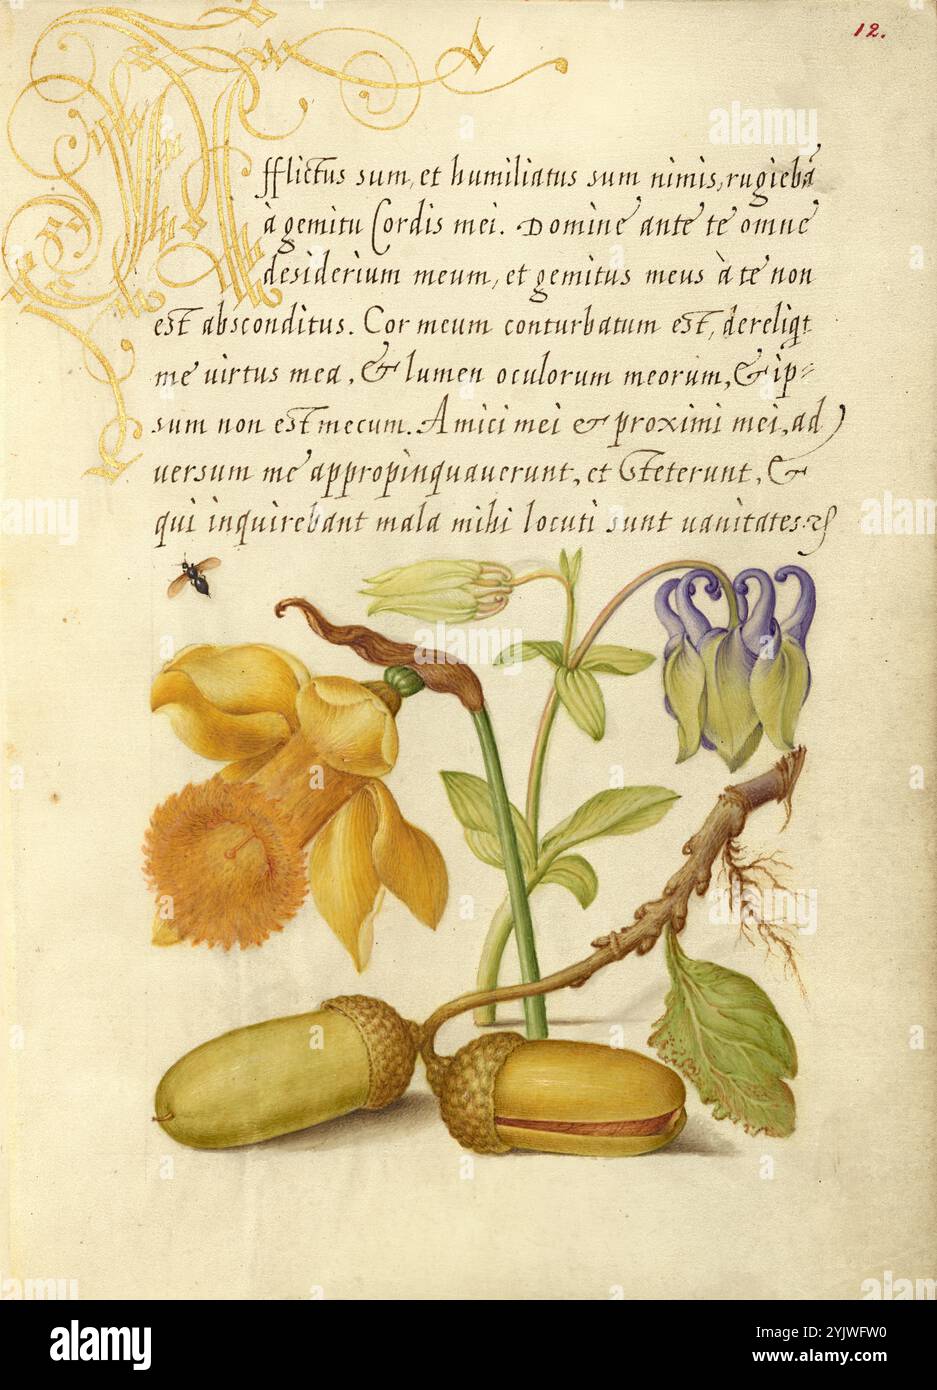 12.
Afflictus sum, et humiliatus sum nimis, rugiebā
à gemitu Cordis mei. Domine ante te omne
desiderium meum, et gemitus meus à te non
est absconditus. Cor meum conturbatum est, dereliqt
me uirtus mea, & lumen oculorum meorum, & ip=
sum non est mecum. Amici mei & proximi mei, ad
uersum me appropinquauerunt, et steterunt, &
qui inquirebant mala mihi locuti sunt uanitates.
alamy
Image ID: 2YJWFW0
www.alamy.com